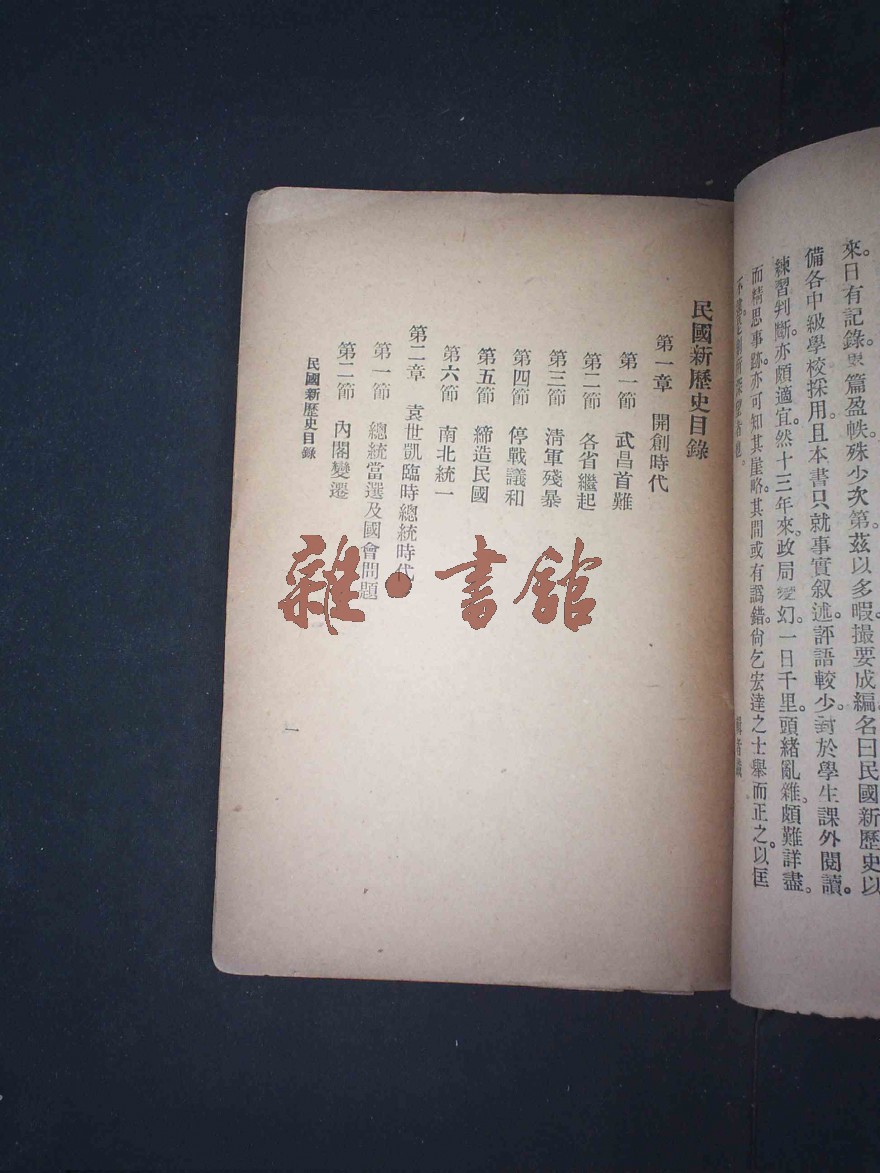 來。日有記錄。累篇盈帙。殊少次第。茲以多暇。撮要成編。名曰民國新歷史以
備各中級學校採用。且本書只就事實叙述。評語較少。對於學生課外閱讀。
練習判斷。亦頗適宜。然十三年來。政局變幻。一日千里。頭緒亂雜。頗難詳盡。
而精思事跡。亦可知其崖略。其間或有譌錯。尙乞宏達之士。舉而正之。以匡
民國新歷史目錄
第一章 開創時代
第一節 武昌首難
第二節 各省繼起
第三節 淸軍殘暴
第四節 停戰議和
第五節 締造民國
第六節 南北統一
第二章 袁世凱臨時總統時代
第一節 總統當選及國會問題
第二節 內閣變遷
民國新歷史目錄
一
雜·書館